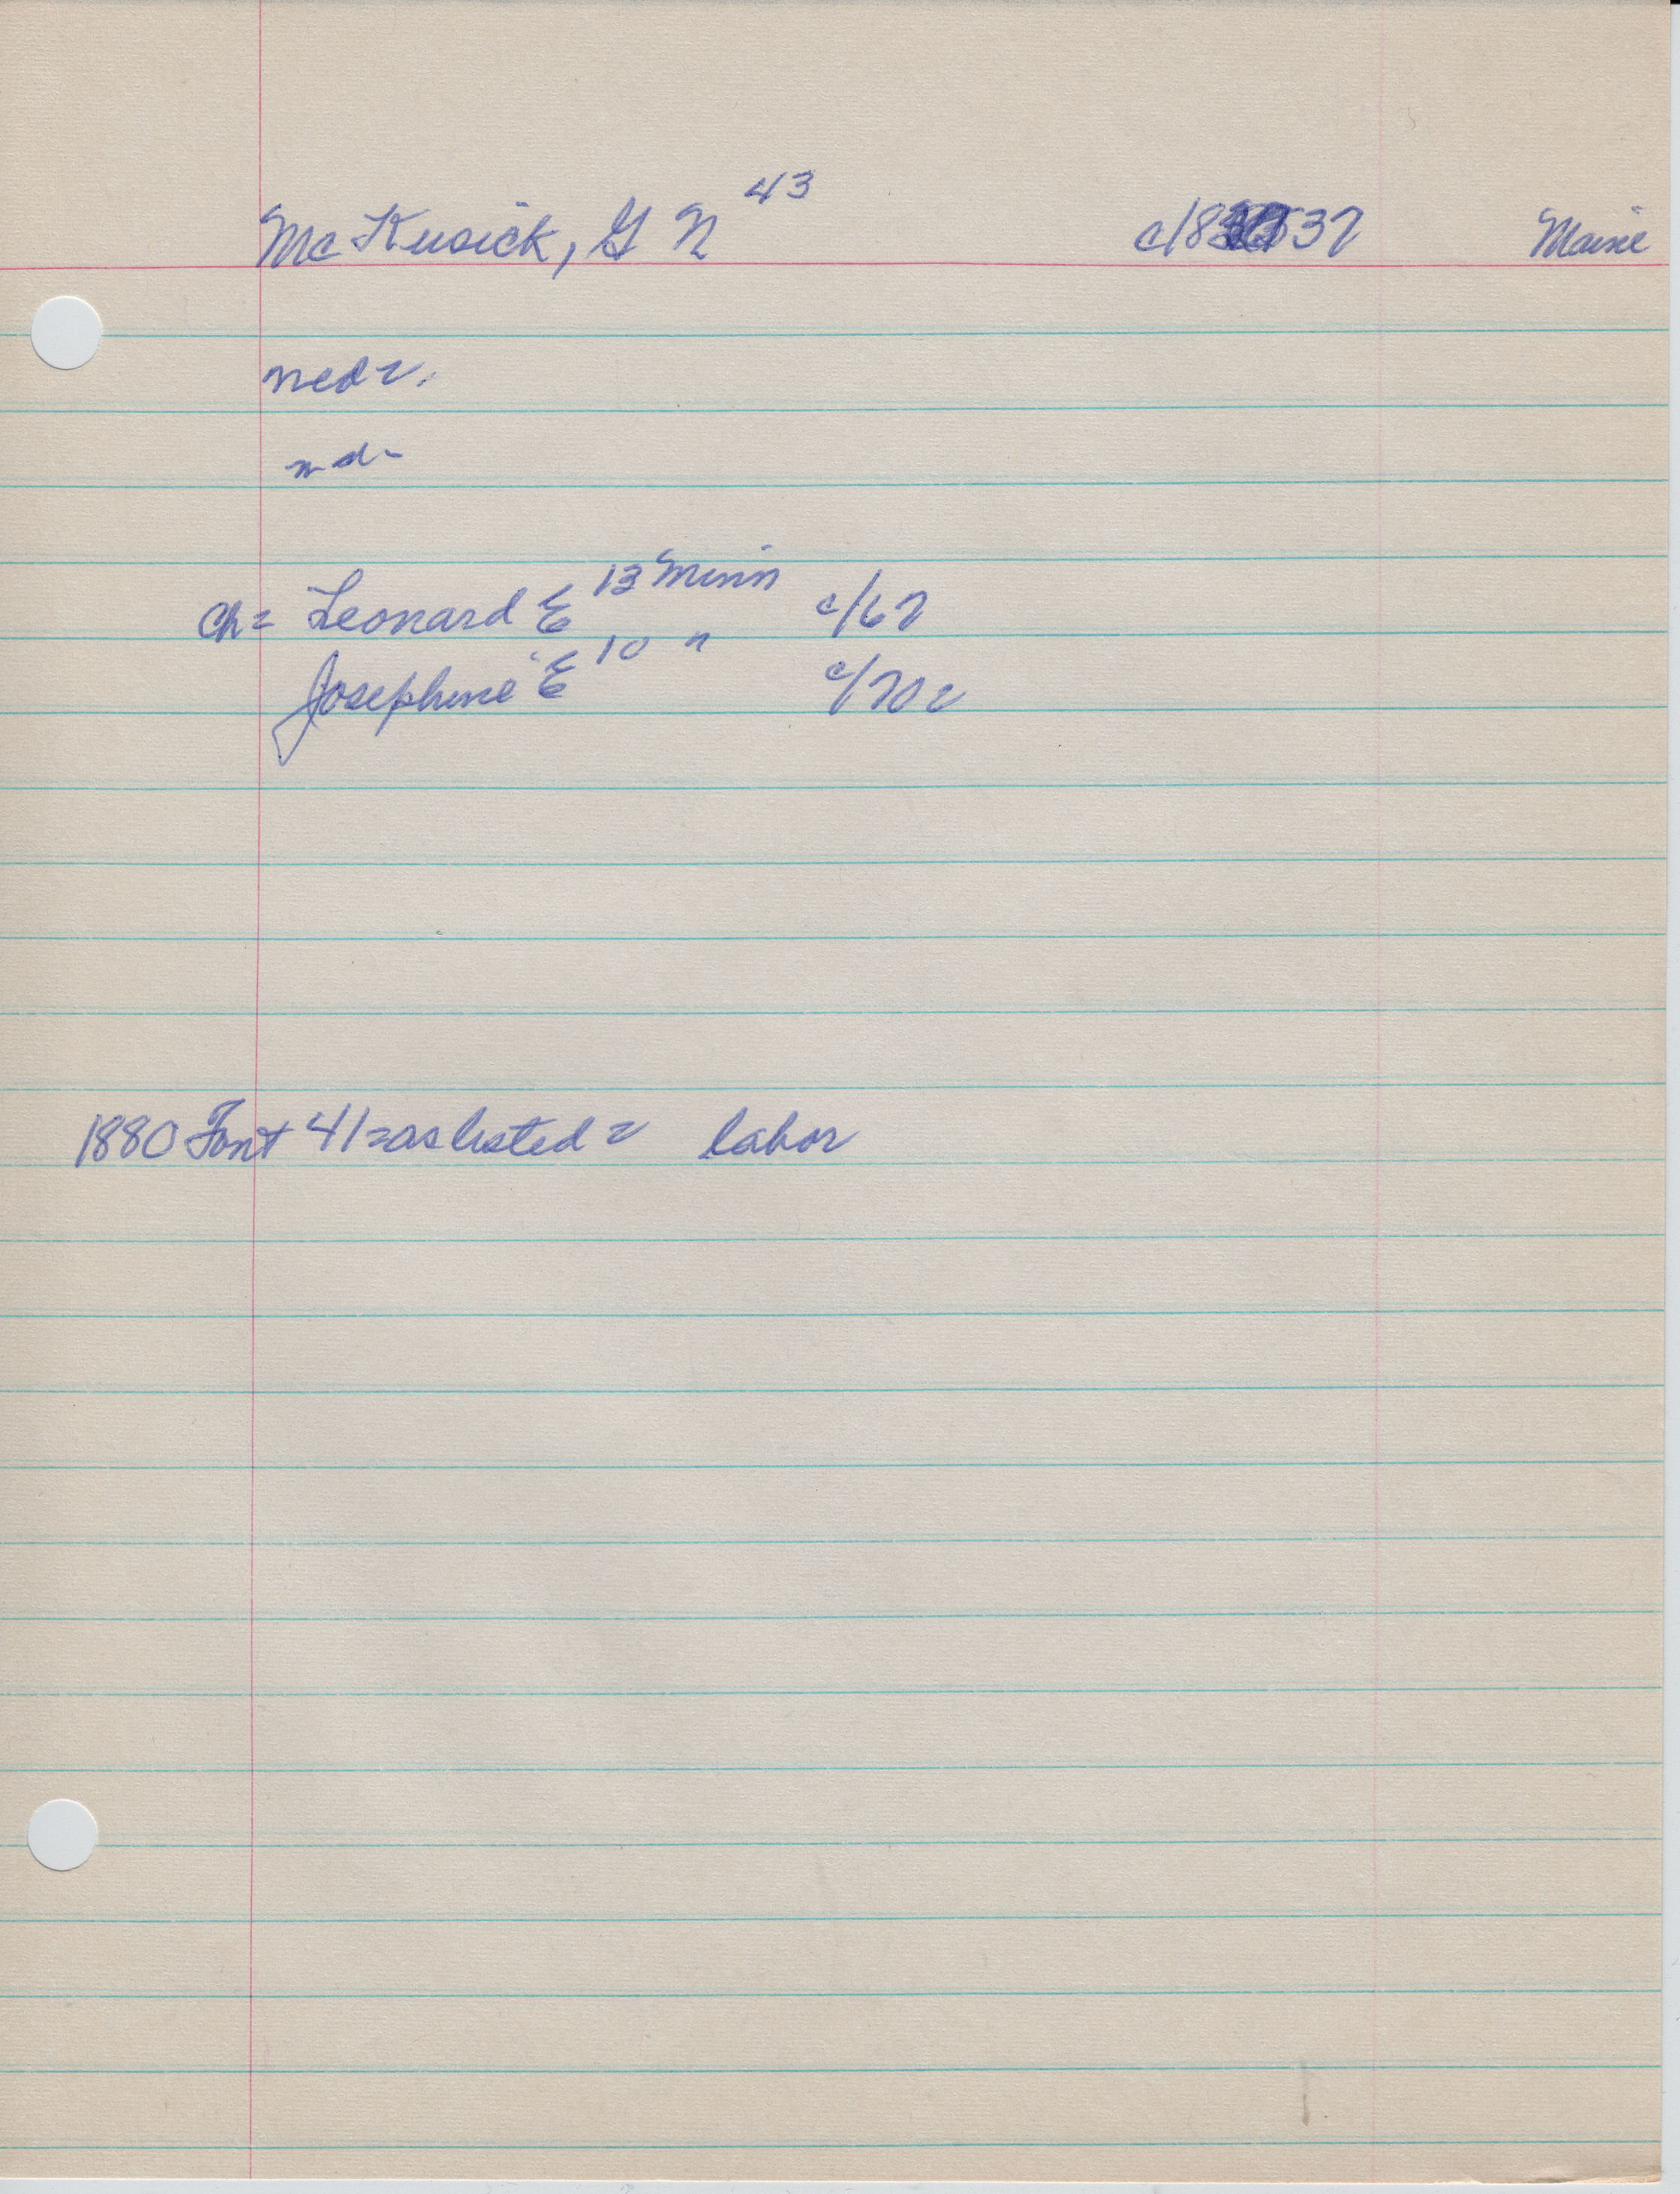 McKusick, G N 43 c/1837 Maine
wed=
ch= Leonard E 13 Minn c/67
Josephine E 10 " c/70=
1880 Font 41=as listed= labor